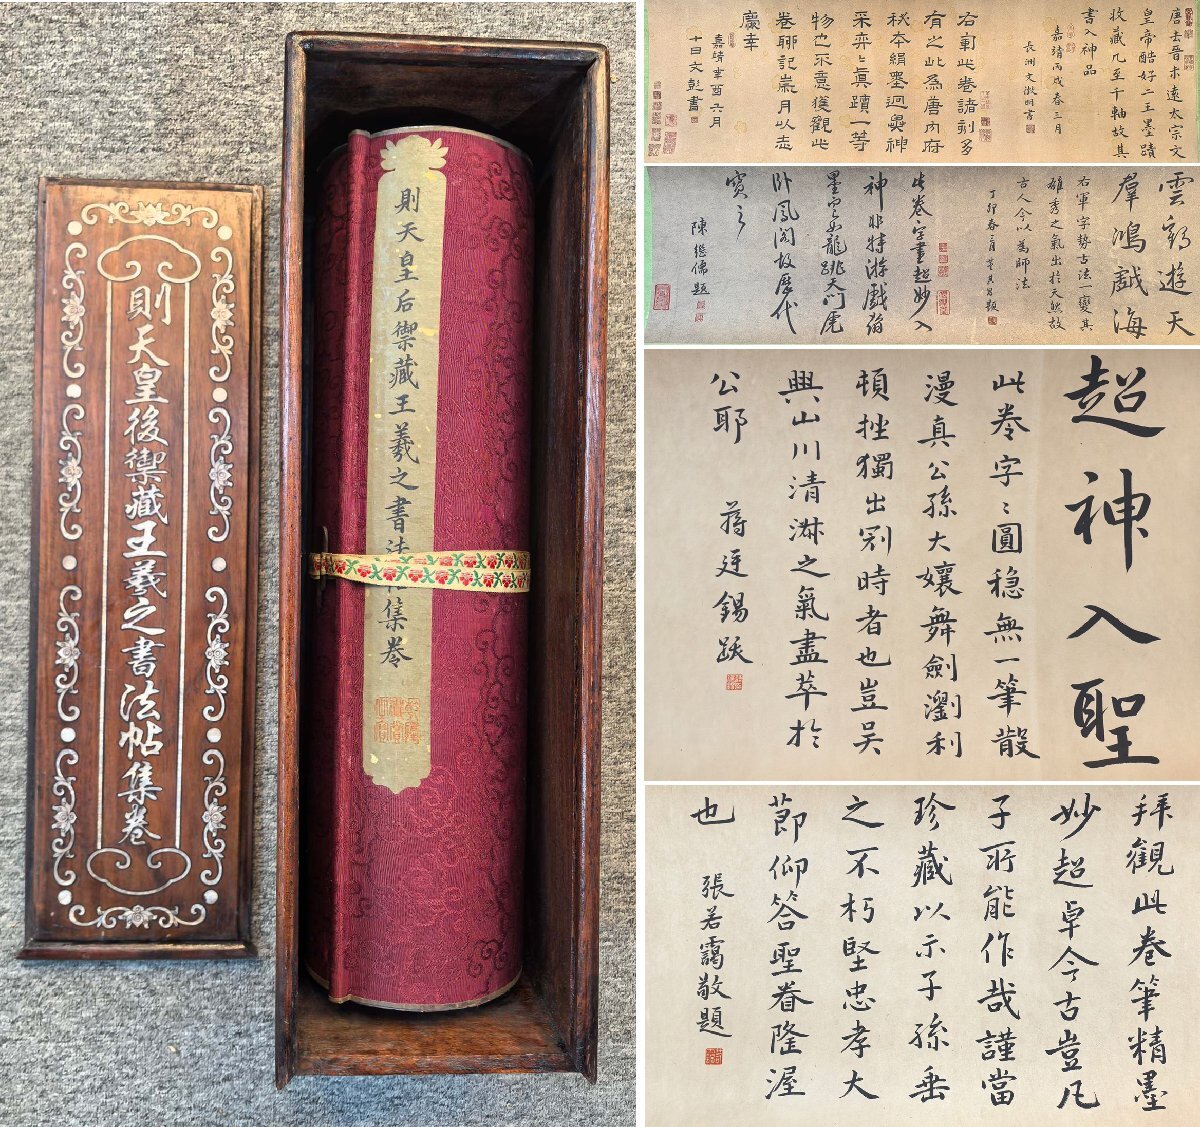 則天皇後禦藏王羲之書法帖集卷
則天皇后禦藏王羲之書法帖集卷
唐去晋未遠太宗文
皇帝酷好二王墨蹟
收藏凡至千軸故其
書入神品
嘉靖丙戌春三月
長洲文徵明書
右軍此卷諸刻多
有之此為唐内府
秘本絹墨迥異神
采弈〻真蹟一等
物也不意獲觀此
卷聊記嵗月以志
慶幸
嘉靖辛酉六月
十日文彭書
雲鶴遊天
羣鴻戯海
右軍字勢古法一變其
雄秀之氣出於天然故
古人今以為師法
丁卯春三月董其昌題
此卷字畫超妙入
神非特游戲翰
墨宛如龍跳天門虎
卧鳳閣故歷代
寳之
陳繼儒題
超神入聖
此卷字〻圓稳無一筆散
漫真公孫大孃舞劍瀏利
頓挫獨出冠時者也豈吴
興山川清淋之氣盡萃於
公耶
蔣廷錫跋
拜觀此卷筆精墨
妙超卓今古豈凡
子所能作哉謹當
珍藏以示子孫垂
之不朽堅忠孝大
節仰答聖眷隆渥
也
張若靄敬題